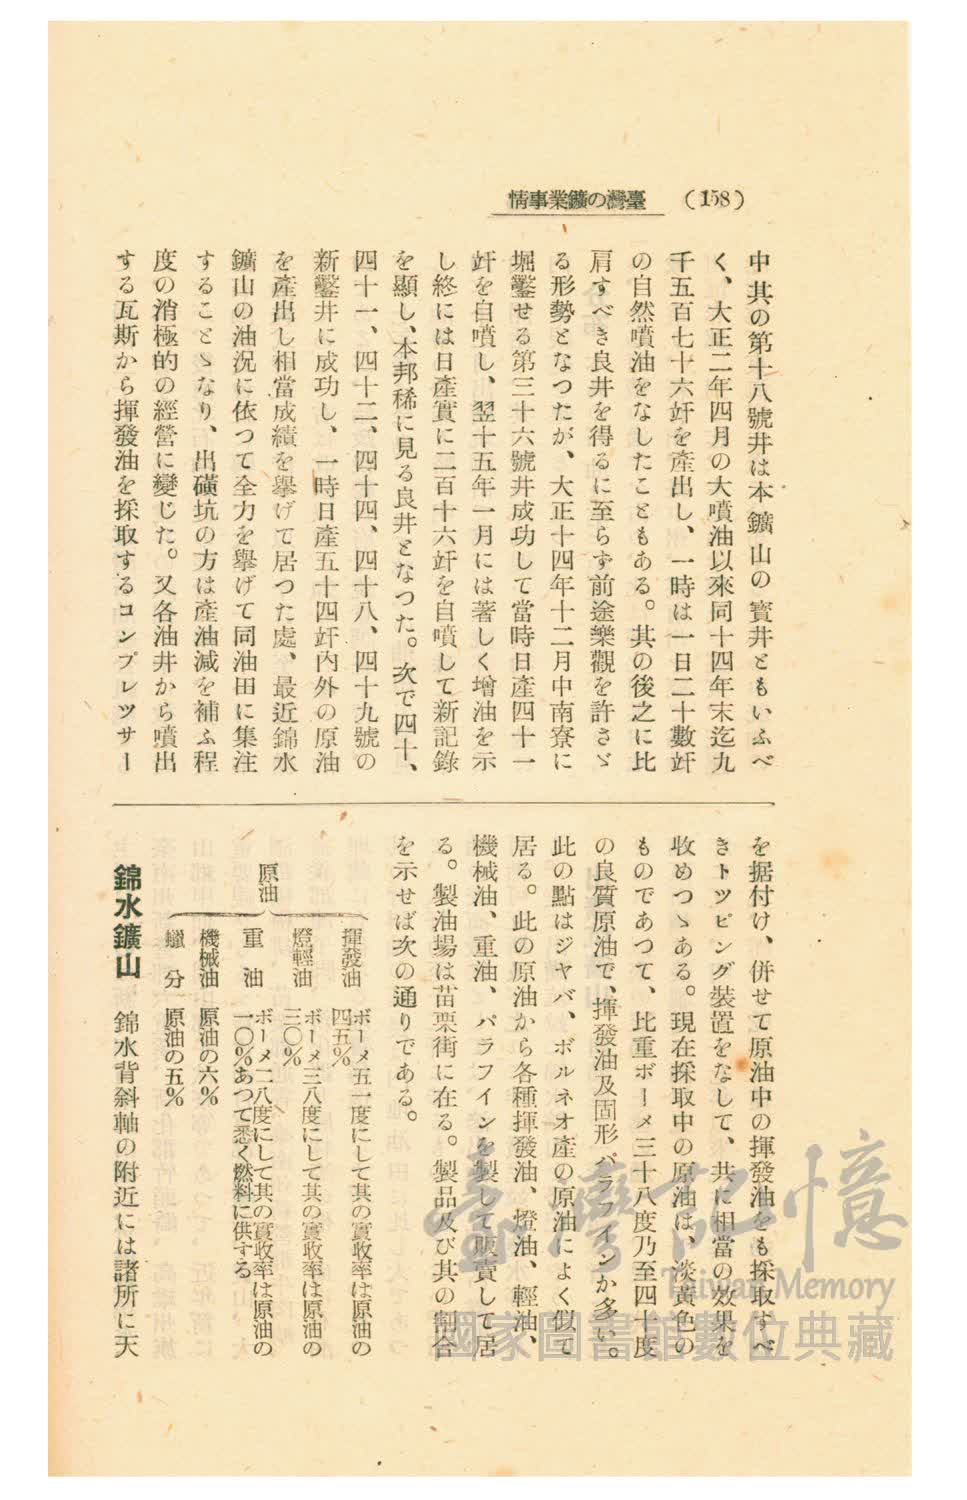 (158)
臺灣の鑛業事情
中其の第十八號井は本鑛山の寶井ともいふべ
く、大正二年四月の大噴油以來同十四年末迄九
千五百七十六竏を產出し、一時は一日二十數竏
の自然噴油をなしたこともある。其の後之に比
肩すべき良井を得るに至らず前途樂觀を許さゞ
る形勢となつたが、大正十四年十二月中南寮に
堀鑿せる第三十六號井成功して當時日產四十一
竏を自噴し、翌十五年一月には著しく增油を示
し終には日產實に二百十六竏を自噴して新記錄
を顯し、本邦稀に見る良井となつた。次で四十、
四十一、四十二、四十四、四十八、四十九號の
新鑿井に成功し、一時日產五十四竏內外の原油
を產出し相當成績を擧げて居つた處、最近錦水
鑛山の油況に依つて全力を擧げて同油田に集注
することゝなり、出磺坑の方は產油減を補ふ程
度の消極的の經營に變じた。又各油井から噴出
する瓦斯から揮發油を採取するコンプレツサー
を据付け、併せて原油中の揮發油をも採取すべ
きトツピング裝置をなして、共に相當の效果を
收めつゝある。現在採取中の原油は、淡黃色の
ものであつて、比重ボーメ三十八度乃至四十度
の良質原油で、揮發油及固形パラフインか多い。
此の點はジヤバ、ボルネオ產の原油によく似て
居る。此の原油から各種揮發油、燈油、輕油、
機械油、重油、パラフインを製して販賣して居
る。製油場は苗栗街に在る。製品及び其の割合
を示せば次の通りである。
原油
揮發油 ボーメ五一度にして其の實收率は原油の
四五%
燈輕油 ボーメ三八度にして其の實收率は原油の
三〇%
重油 ボーメ二八度にして其の實收率は原油の
一〇%あつて悉く燃料に供する
機械油 原油の六%
蠟分 原油の五%
錦水鑛山 錦水背斜軸の附近には諸所に天
臺灣記憶
Taiwan Memory
國家圖書館數位典藏